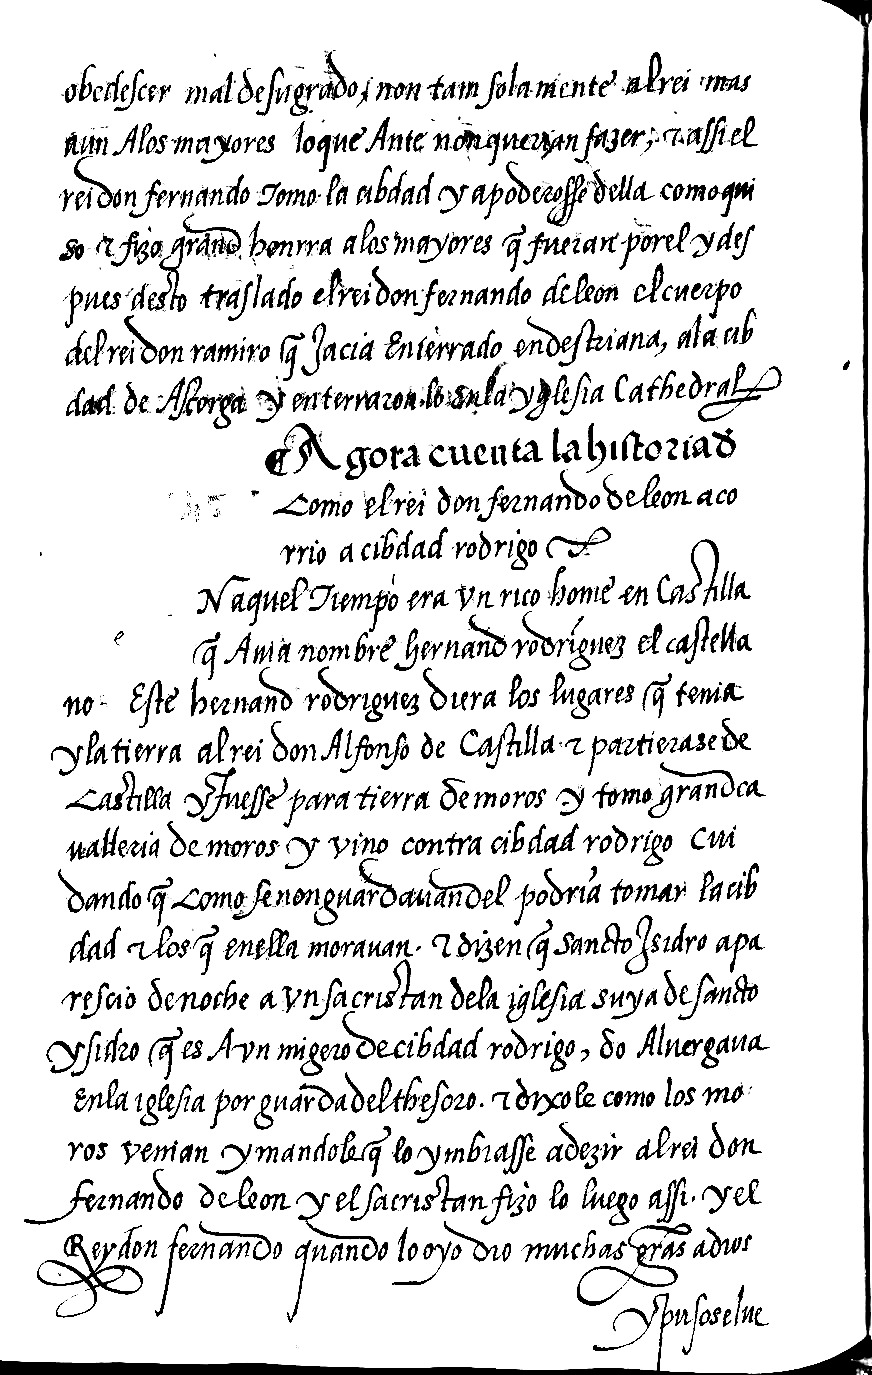 obedescer mal desugrado, non tam solamente alrei mas
aun Alos mayores loque Ante nonquerian fazer, τ assi el
rei don fernando Tomo la cibdad y apoderosse della como qui
so τ fizo grand honrra alos mayores q̃ fueran porel y des
pues desto traslado elrei don fernando deleon el cuerpo
delrei don ramiro q̃ Jacia Enterrado endestriana, ala cib
dad de Astorga y enterraron lo enla yglesia Cathedral
Agora cuenta la historia d̃
Como el rei don fernando deleon aco
rrio a cibdad rodrigo
N aquel Tiempo era vn rico home en Castilla
e
q̃ Auia nombre hernand rodríguez el castella
no. Este hernand rodriguez diera los lugares q̃ tenia
y la tierra al rei don Alfonso de Castilla τ partierase de
Castilla y fuesse para tierra demoros y tomo grand ca
ualleria de moros y vino contra cibdad rodrigo Cui
dando q̃ Como senonguardauan del podría tomar la cib
dad τ los q̃ enella morauan. τ dizen q̃ sancto Jsidro apa
rescio denoche a vn sacristan dela iglesia suya de sancto
ysidro q̃ es A vn migero de cibdad rodrigo, do Aluergaua
Enla iglesia por guarda del thesoro. τ dixole como los mo
ros venian y mandole q̃ lo ymbiasse adezir alrei don
fernando deleon y el sacristan fizo lo luego assi. y el
Rey don fernando quando lo oyo dio muchas gr̃as adios
y pusoselue